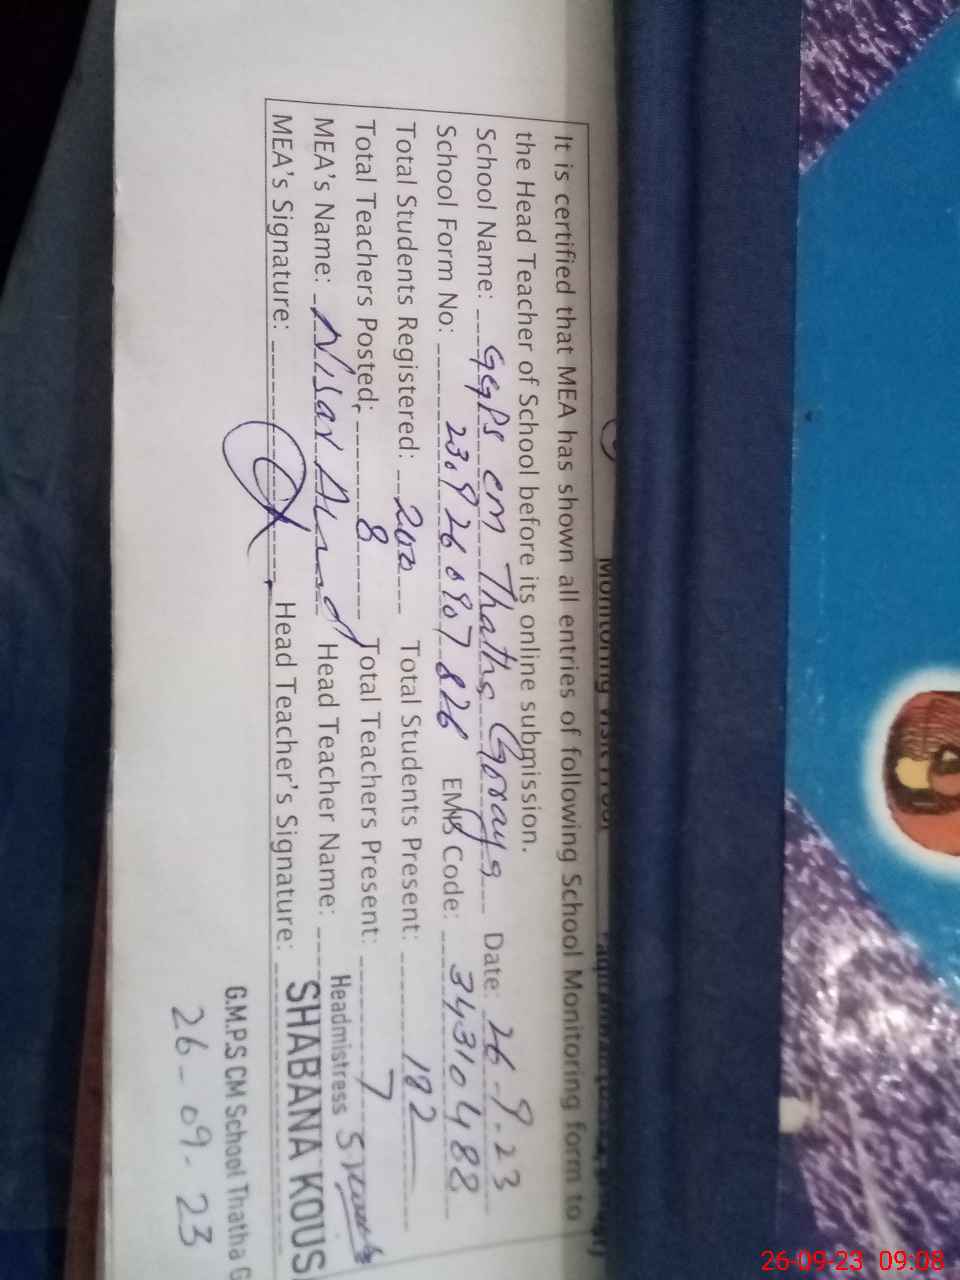 It is certified that MEA has shown all entries of following School Monitoring form to
the Head Teacher of School before its online submission.
School Name: GGPS CM Thatha Goraya Date: 26-9-23
School Form No: 23,9 26 0907 826 EMIS Code: 34310488
Total Students Registered: 200 Total Students Present: 182
Total Teachers Posted: 8 Total Teachers Present: 7
MEA's Name: Nisar Ahmad Head Teacher Name: Headmistress
MEA's Signature: Head Teacher's Signature: SHABANA KOUS
G.M.P.S CM School Thatha G
26-09-23
26-09-23 09:08